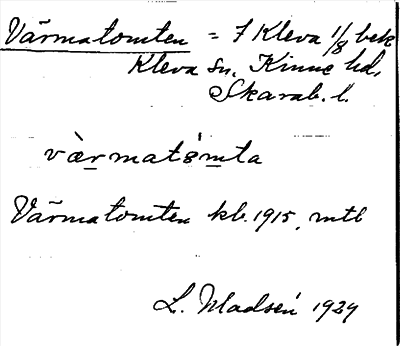 Värmatomten = 7 Kleva 1/8 bek
Kleva sn, Kinne hd,
Skarab. l.
värmatómta
Värmatomten kb. 1915, mtl
L. Madsén 1929